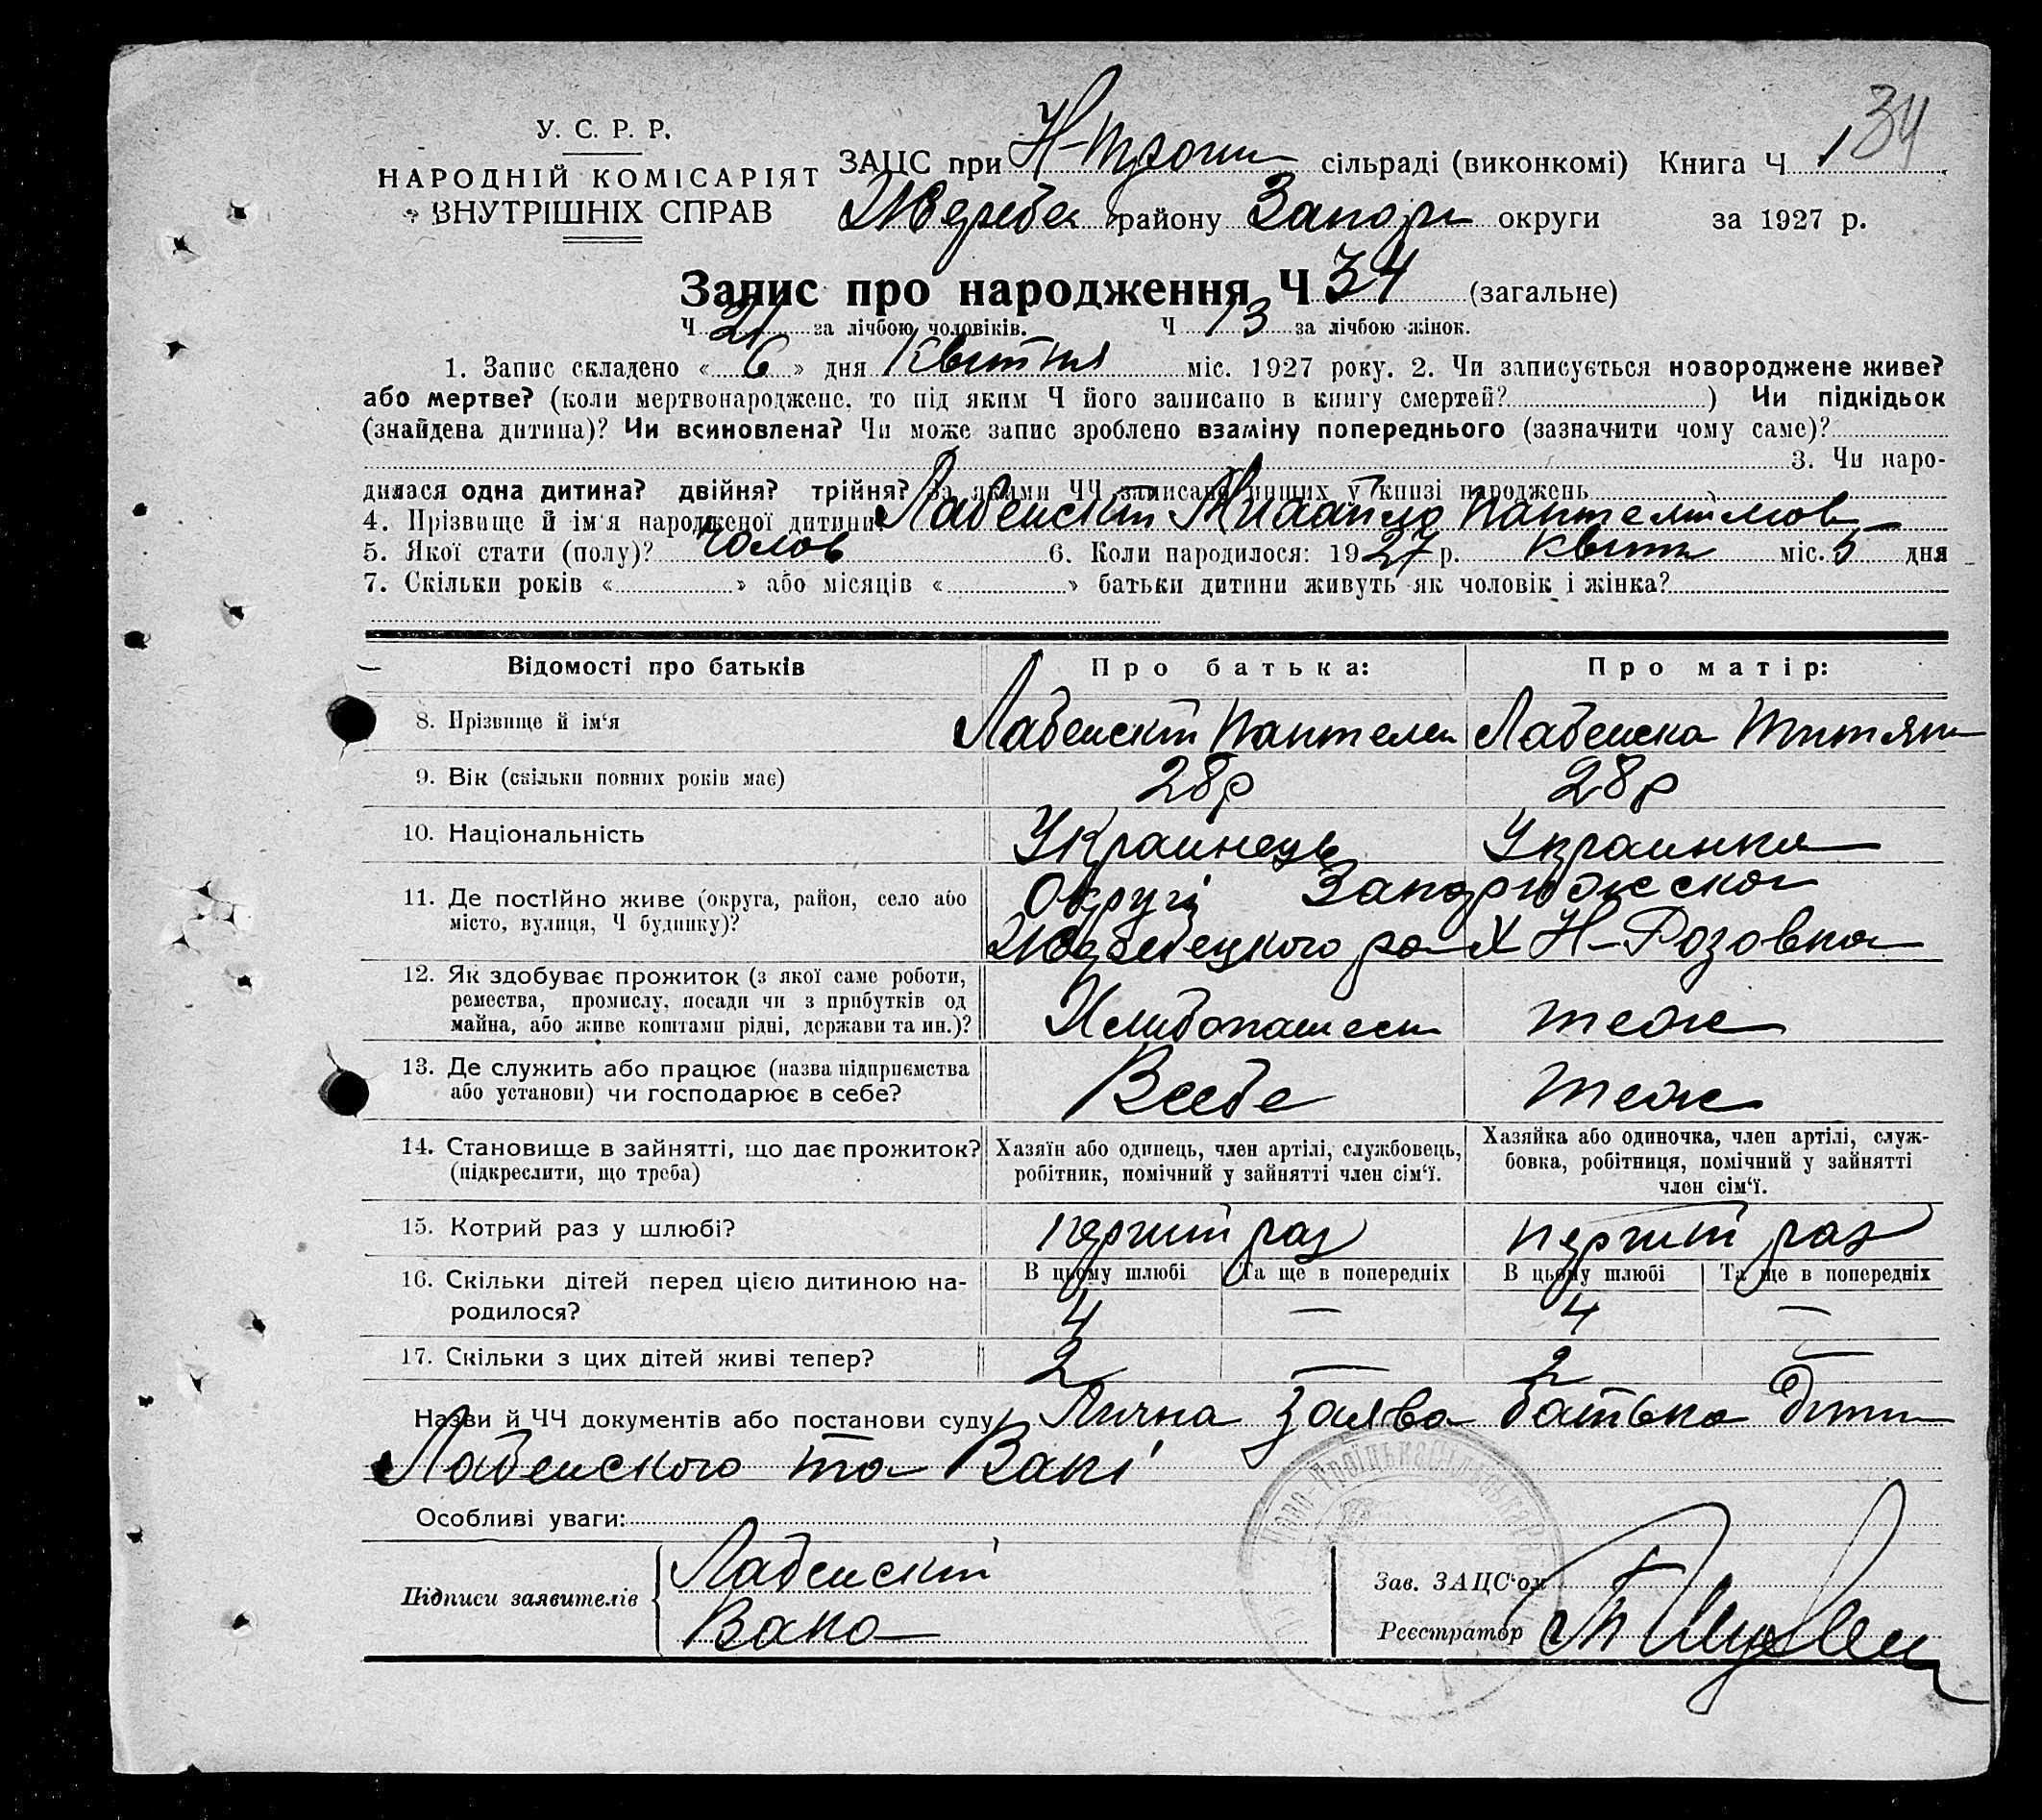 34
У. С. Р. Р.
НАРОДНІЙ КОМІСАРІЯТ
ВНУТРІШНІХ СПРАВ
ЗАЦС при Н-Троїц сільраді (виконкомі) Книга Ч 1
Жереб району Запорі округи за 1927 р.
Запис про народження Ч 34 (загальне)
Ч 21 за лічбою чоловіків. Ч 13 за лічбою жінок.
1. Запис складено « 6 » дня Квітня міс. 1927 року. 2. Чи записується новороджене живе?
або мертве? (коли мертвонароджене, то під яким Ч його записано в книгу смертей? ) Чи підкідьок
(знайдена дитина)? Чи всиновлена? Чи може запис зроблено взаміну попереднього (зазначити чому саме)?
3. Чи наро-
дилася одна дитина? двійня? трійня? За якими ЧЧ записано инших у книзі народжень
4. Прізвище й ім'я народженої дитини Лабенскій Михайло Пантелімов
5. Якої стати (полу)? Чолов 6. Коли народилося: 1927 р. квітн міс. 5 дня
7. Скільки років « » або місяців « » батьки дитини живуть як чоловік і жінка?
Відомості про батьків Про батька: Про матір:
8. Прізвище й ім'я Лабенскій Пантелем Лабенска
9. Вік (скільки повних років має) 28р 28р
10. Національність Украинець Украинка
11. Де постійно живе (округа, район, село або Округі Запоріжской
місто, вулиця, Ч будинку)? Жеребецкого ра Х Н-Розовка
12. Як здобуває прожиток (з якої саме роботи,
ремества, промислу, посади чи з прибутків од
майна, або живе коштами рідні, держави та ин.)? Хлибопашест теж
13. Де служить або працює (назва підприємства
або установи) чи господарює в себе? Всебе теж
14. Становище в зайнятті, що дає прожиток? Хазяїн або одинець, член артілі, службовець, Хазяйка або одиночка, член артілі, служ-
(підкреслити, що треба) робітник, помічний у зайнятті член сім'ї. бовка, робітниця, помічний у зайнятті
член сім'ї.
15. Котрий раз у шлюбі? перший раз перший раз
16. Скільки дітей перед цією дитиною на- В цьому шлюбі Та ще в попередніх В цьому шлюбі Та ще в попередніх
родилося? 4 — 4 —
17. Скільки з цих дітей живі тепер? 2 — 2 —
Назви й ЧЧ документів або постанови суду Лична заява батька дити
Лабенского та Вакі
Особливі уваги:
Підписи заявителів Лабенскій
Вака
Зав. ЗАЦС'ом
Реєстратор
Ново-Троїцька Сільська Рада